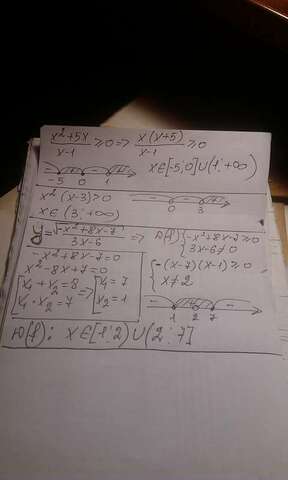 x²+5x / x-1 ≥0 => x(x+5) / x-1 ≥0
- + - +
-5 0 1 x∈[-5;0]∪(1;+∞)
x²(x-3)>0
- - +
x∈(3;+∞) 0 3
y = √-x²+8x-7 / 3x-6 => D(f) { -x²+8x-7≥0
3x-6≠0
-x²+8x-7=0
x²-8x+7=0
{ -(x-7)(x-1)≥0
x≠2
[ x₁+x₂=8
x₁·x₂=7 => [ x₁=7
x₂=1
- + + -
1 2 7
D(f): x∈[1;2)∪(2;7]